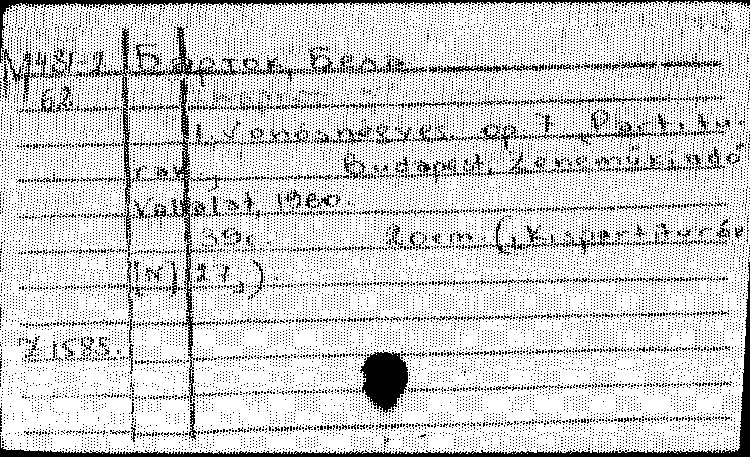 M 431-1 Барток, Бела
Б 2
1. Vonósnégyes. op. 7. Partitu-
ra. Budapest, Zeneműkiadó
Vállalat, 1960.
39 c. 20 cm (Kispartitúrák
[N] 27).
Z 1585.